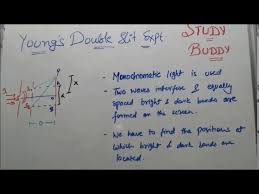 Young's Double Slit Expt.
STUDY
BUDDY
- Monochromatic light is used
- Two waves interfere & equally
spaced bright & dark bands are
formed on the screen.
- We have to find the positions at
which bright & dark bands are
located.